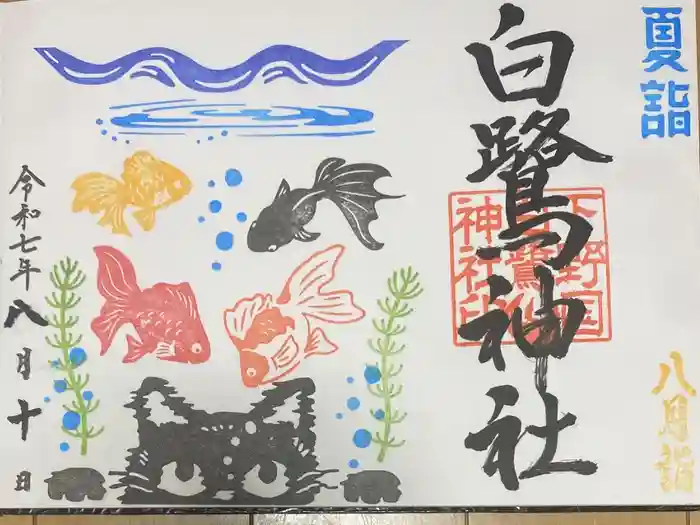 夏詣
白鷺神社
下野国
白鷺神
社印
八月詣
令和七年八月十日